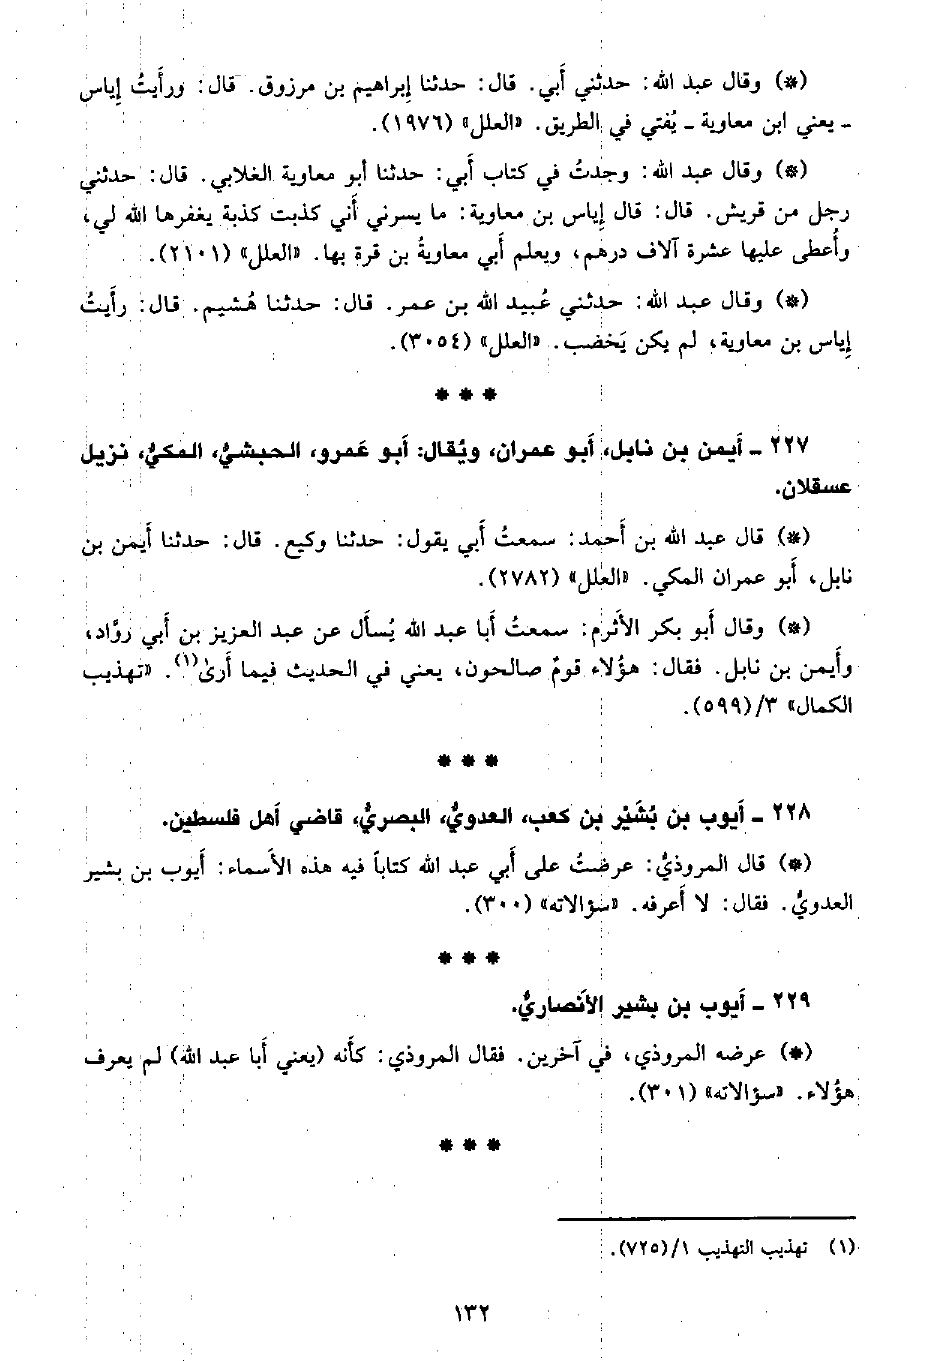 (*) وقال عبد الله: حدثني أَبي. قال: حدثنا إبراهيم بن مرزوق. قال: ورأَيتُ إياس
ـ يعني ابن معاوية ـ يُفتي في الطريق. «العلل» (١٩٧٦).
(*) وقال عبد الله: وجدتُ في كتاب أَبي: حدثنا أبو معاوية الغلابي. قال: حدثني
رجل من قريش. قال: قال إياس بن معاوية: ما يسرني أَني كذبت كذبة يغفرها الله لي،
وأُعطى عليها عشرة آلاف درهم، ويعلم أَبي معاويةُ بن قرة بها. «العلل» (٢١٠١).
(*) وقال عبد الله: حدثني عُبيد الله بن عمر. قال: حدثنا هُشيم. قال: رأَيتُ
إياس بن معاوية، لم يكن يَخضب. «العلل» (٣٠٥٤).
* * *
٢٢٧ ـ أَيمن بن نابل، أَبو عمران، ويُقال: أَبو عَمرو، الحبشيُّ، المكيُّ، نزيل
عسقلان.
(*) قال عبد الله بن أَحمد: سمعتُ أَبي يقول: حدثنا وكيع. قال: حدثنا أَيمن بن
نابل، أَبو عمران المكي. «العلل» (٢٧٨٢).
(*) وقال أَبو بكر الأثرم: سمعتُ أَبا عبد الله يُسأَل عن عبد العزيز بن أَبي روَّاد،
وأَيمن بن نابل. فقال: هؤُلاء قومٌ صالحون، يعني في الحديث فيما أَرىٰ(١). «تهذيب
الكمال» ٣/(٥٩٩).
* * *
٢٢٨ ـ أَيوب بن بُشَيْر بن كعب، العدويُّ، البصريُّ، قاضي أهل فلسطين.
(*) قال المروذيُّ: عرضتُ على أَبي عبد الله كتاباً فيه هذه الأسماء: أَيوب بن بشير
العدويُّ. فقال: لا أَعرفه. «سؤالاته» (٣٠٠).
* * *
٢٢٩ ـ أَيوب بن بشير الأَنصاريُّ.
(*) عرضه المروذي، في آخرين. فقال المروذي: كأَنه (يعني أَبا عبد الله) لم يعرف
هؤُلاء. «سؤالاته» (٣٠١).
* * *
(١) تهذيب التهذيب ١/(٧٢٥).
١٣٢